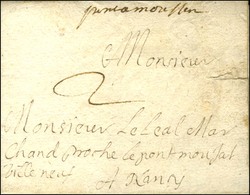 pontamousson
Monsieur
2
Monsieur Le Leal Mar
Chand proche le pont mousat
Ville neuf
A Nancy